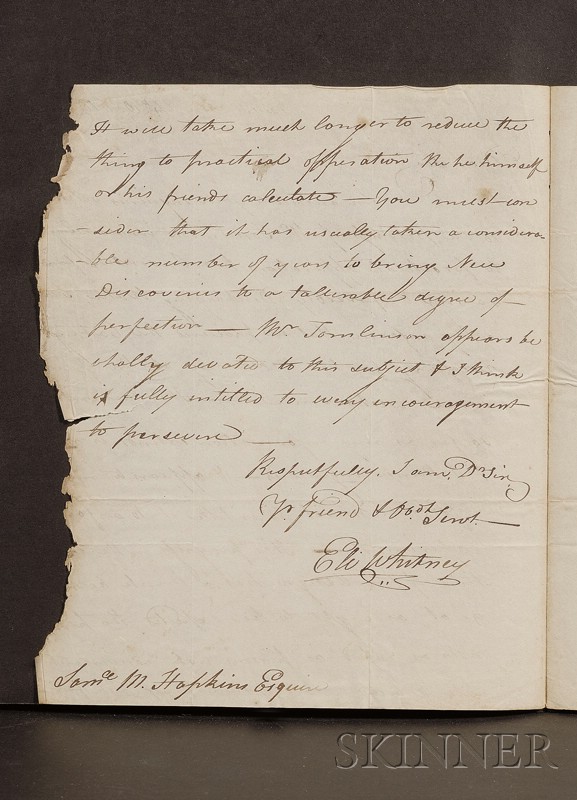 It will take much longer to reduce the
thing to practical opperation the he himself
or his friends calculate — You must con
-sider that it has usually taken a considera-
-ble number of years to bring New
Discoveries to a tollerable degree of
perfection — Mr Tomlinson appears be
wholly devoted to this subject & I think
is fully intitled to every encouragement
to persevere —
Respectfully, I am, Dr Sir,
Yr friend & Obdt Servt
Eli Whitney
Saml M. Hopkins Esquire
SKINNER